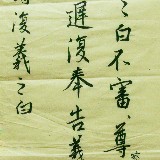 之白不審尊
遲復奉告羲
復羲之白